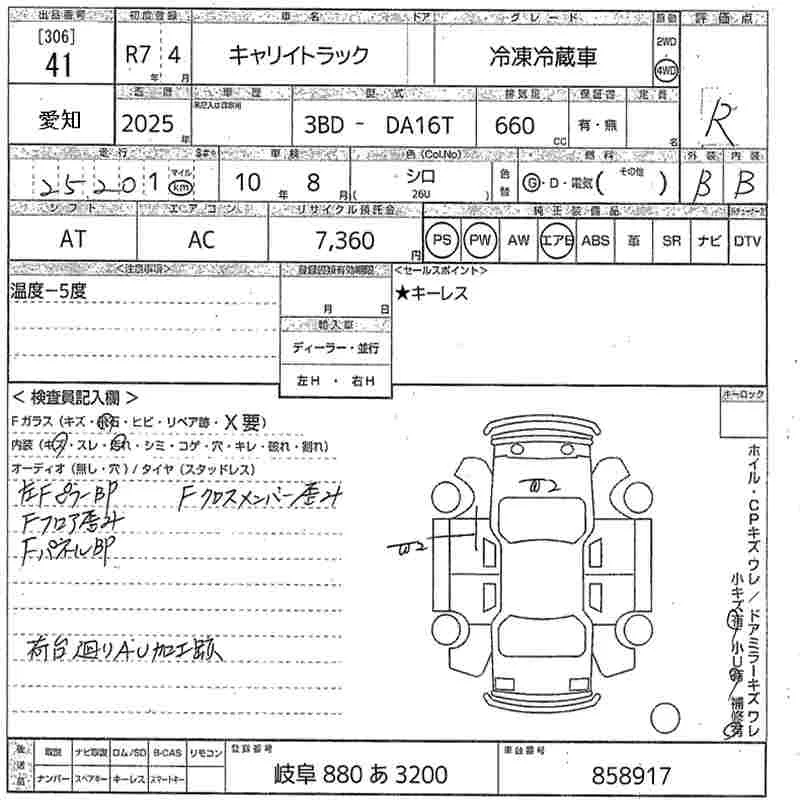 出品番号 初度登録 車名 ドア グレード 原動 評価点
[306] 41 R7年 4月 キャリイトラック 冷凍冷蔵車 2WD 4WD R
愛知
年 2025年 車歴 型式 3BD - DA16T 排気量 660 CC 保証書 有・無 定員 名
走行 25201 マイル km 車検 10年 8月 色(Col.No) シロ (26U) 色替 燃料 G・D・電気( その他 ) 外装 B 内装 B
シフト エアコン リサイクル預託金 純正装備品
AT AC 7,360円 PS PW AW エアB ABS 革 SR ナビ DTV
<注意事項> 登録の認有効期限 <セールスポイント>
温度−5度 月 日 ★キーレス
輸入車
ディーラー・並行
左H ・ 右H
< 検査員記入欄 > キーロック
Fガラス (キズ・飛石・ヒビ・リペア跡・X要)
内装 (キズ・スレ・汚れ・シミ・コゲ・穴・キレ・破れ・割れ)
オーディオ (無し・穴) / タイヤ (スタッドレス)
FクロスメンバーBP歪ミ
Fフロア歪ミ
FパネルBP
荷台廻りAU加工跡
W2
W2
ホイル・CPキズ ワレ / ドアミラーキズ ワレ
小キズ有 / 小U有 / 補修有
後送品 取説 ナビ取説 ロム/SD B-CAS リモコン 登録番号 車台番号
ナンバー スペアキー キーレス スマートキー 岐阜 880 あ 3200 858917